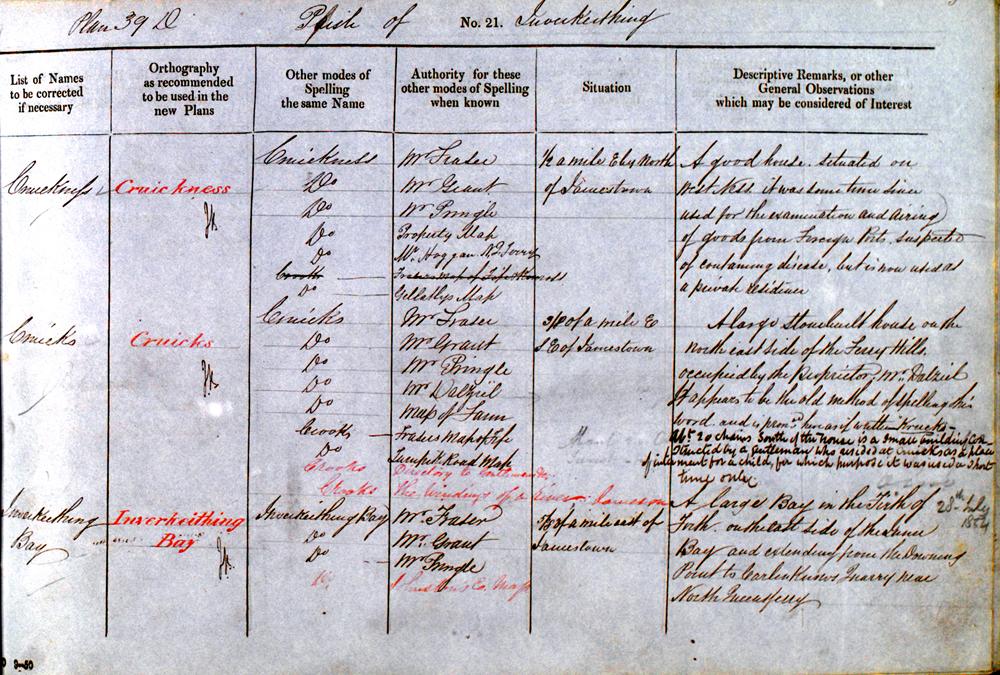 Plan 39 D Psh of No. 21. Inverkeithing
List of Names to be corrected if necessary
Orthography as recommended to be used in the new Plans
Other modes of Spelling the same Name
Authority for these other modes of Spelling when known
Situation
Descriptive Remarks, or other General Observations which may be considered of Interest
Cruickness Mr Fraser ½ a mile E by North A good house situated on
Cruickness Cruickness Do Mr Grant of Jamestown West Ness it was some time since
Do Mr Pringle used for the examination and airing
Do Property Map of goods from Foreign Ports suspected
Do Mr Hoggan of containing disease, but is now used as
Crook Frasers Map of Fife a private residence
Do Gellatlys Map
Cruicks Mr Fraser 3/8 of a mile E A large stone built house on the
Cruicks Cruicks Do Mr Grant S E of Jamestown North east side of the Ferry Hills
Do Mr Pringle occupied by the Proprietor Mr Dalziel
Do Mr Dalziel It appears to be the old method of spelling this
Do Map of Farm word and is pron. here as if written Krucks
Crooks Frasers Map of Fife Abt. 20 chains South of the house is a small building con-
Do Turnpike Road Map structed by a gentleman who resided at Cruicks as a place
Crooks Directory to Gentlemen of interment for a child, for which purpose it was used a short
Crooks the Windings of a River, Jameson time only
28th July 1854
Inverkeithing Inverkeithing Inverkeithing Bay Mr Fraser of a mile east of A large Bay in the Firth of
Bay Bay Do Mr Grant Jamestown Forth on the east side of the Inner
Do Mr Pringle Bay and extending from the Downing
Johnston's Co. Map Point to Carlin Knows Quarry near
North Queensferry